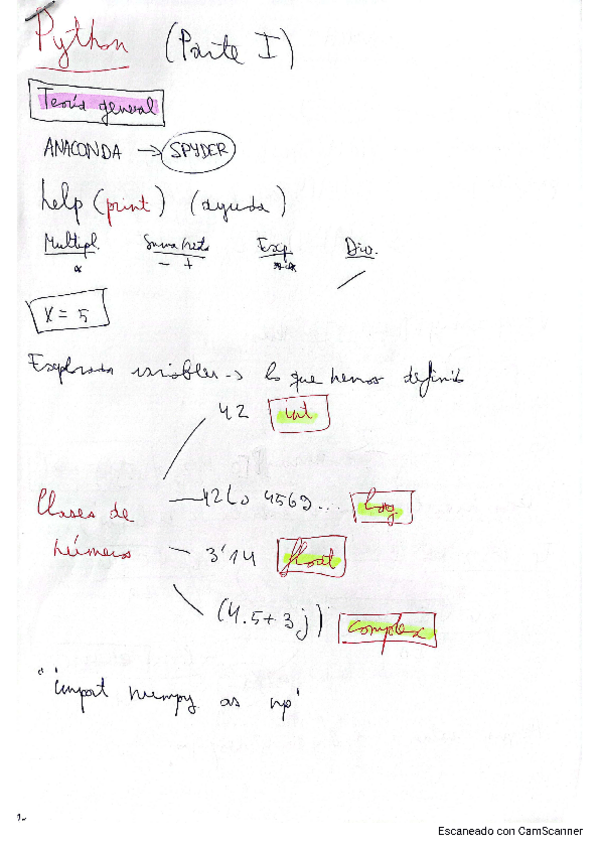 Python (Parte I)
Teoría general
ANACONDA → SPYDER
help (print) (ayuda)
Multipl. Suma/resta Exp. Div.
* - + ** /
x = 5
Explorador variables → lo que hemos definido
42 int
Clases de números
42L o 4569... Log.
3'14 float
(4.5 + 3j) complex
"import numpy as np"
Escaneado con CamScanner